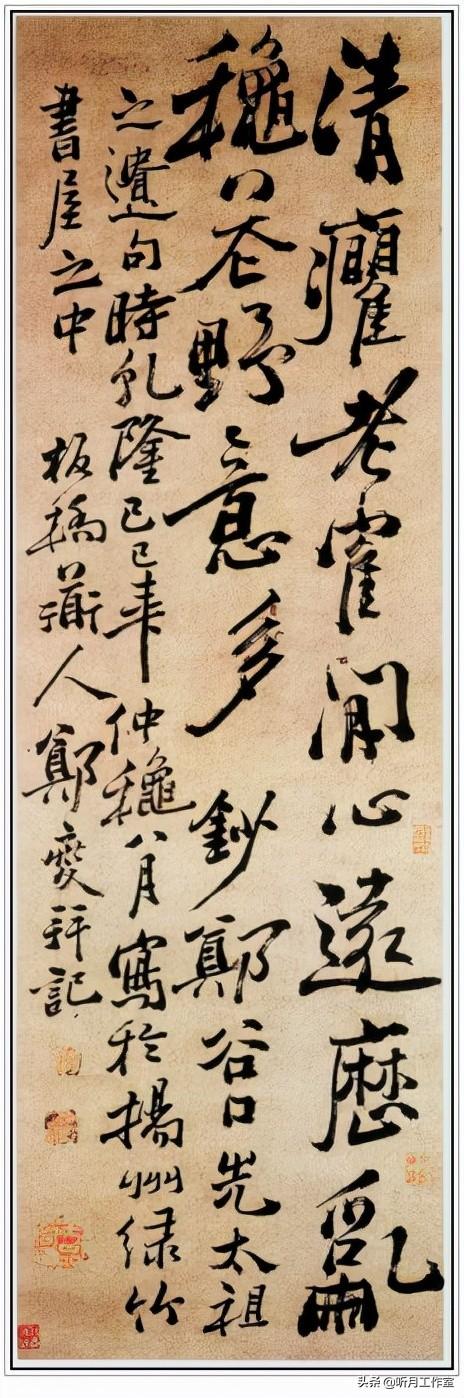 清癯老隺閒心遠歷亂
穐花野意多 鈔鄭谷口先太祖
之遺句時乾隆己巳年仲穐八月寫於揚州緑竹
書屋之中 板橋人鄭燮拜記
头条 @听月工作室